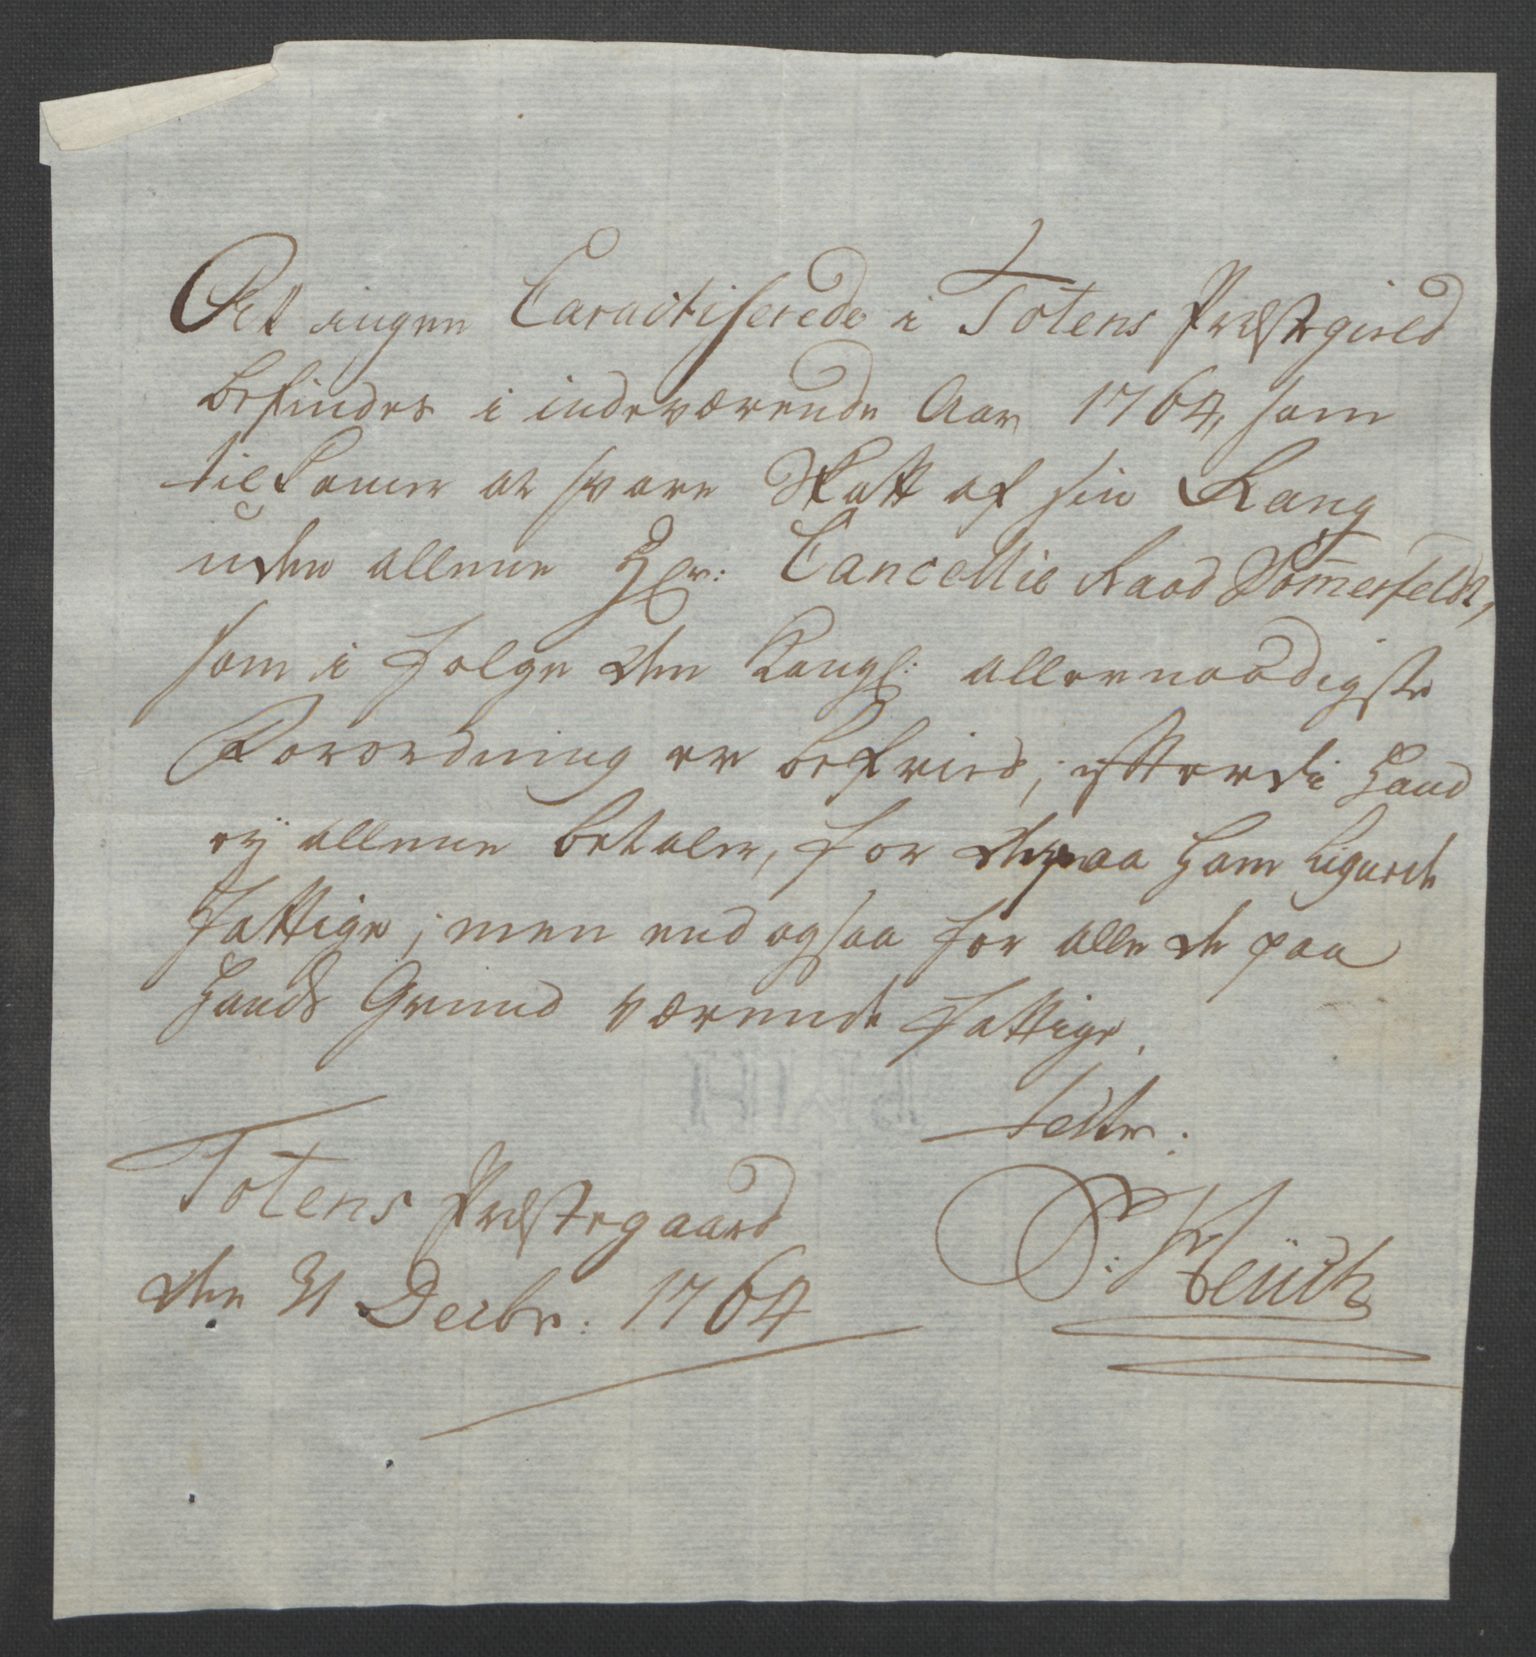 At ingen Caractiserede i Totens Præstegield
befindes i indeværende Aar 1764, som
tilkomer at svare Skatt af sin Rang
uden allene Hr: Cancellie Raad Somerfeldt,
som i Følge den Kongl: allernaadigste
Forordning er befried; efterdi Hand
ey allene betaler, for de paa Ham Lignede
Fattige; men end ogsaa for alle de paa
Hands Grund værende Fattige.
Test:
Totens Præstegaard
den 31 Decbr: 1764
P: